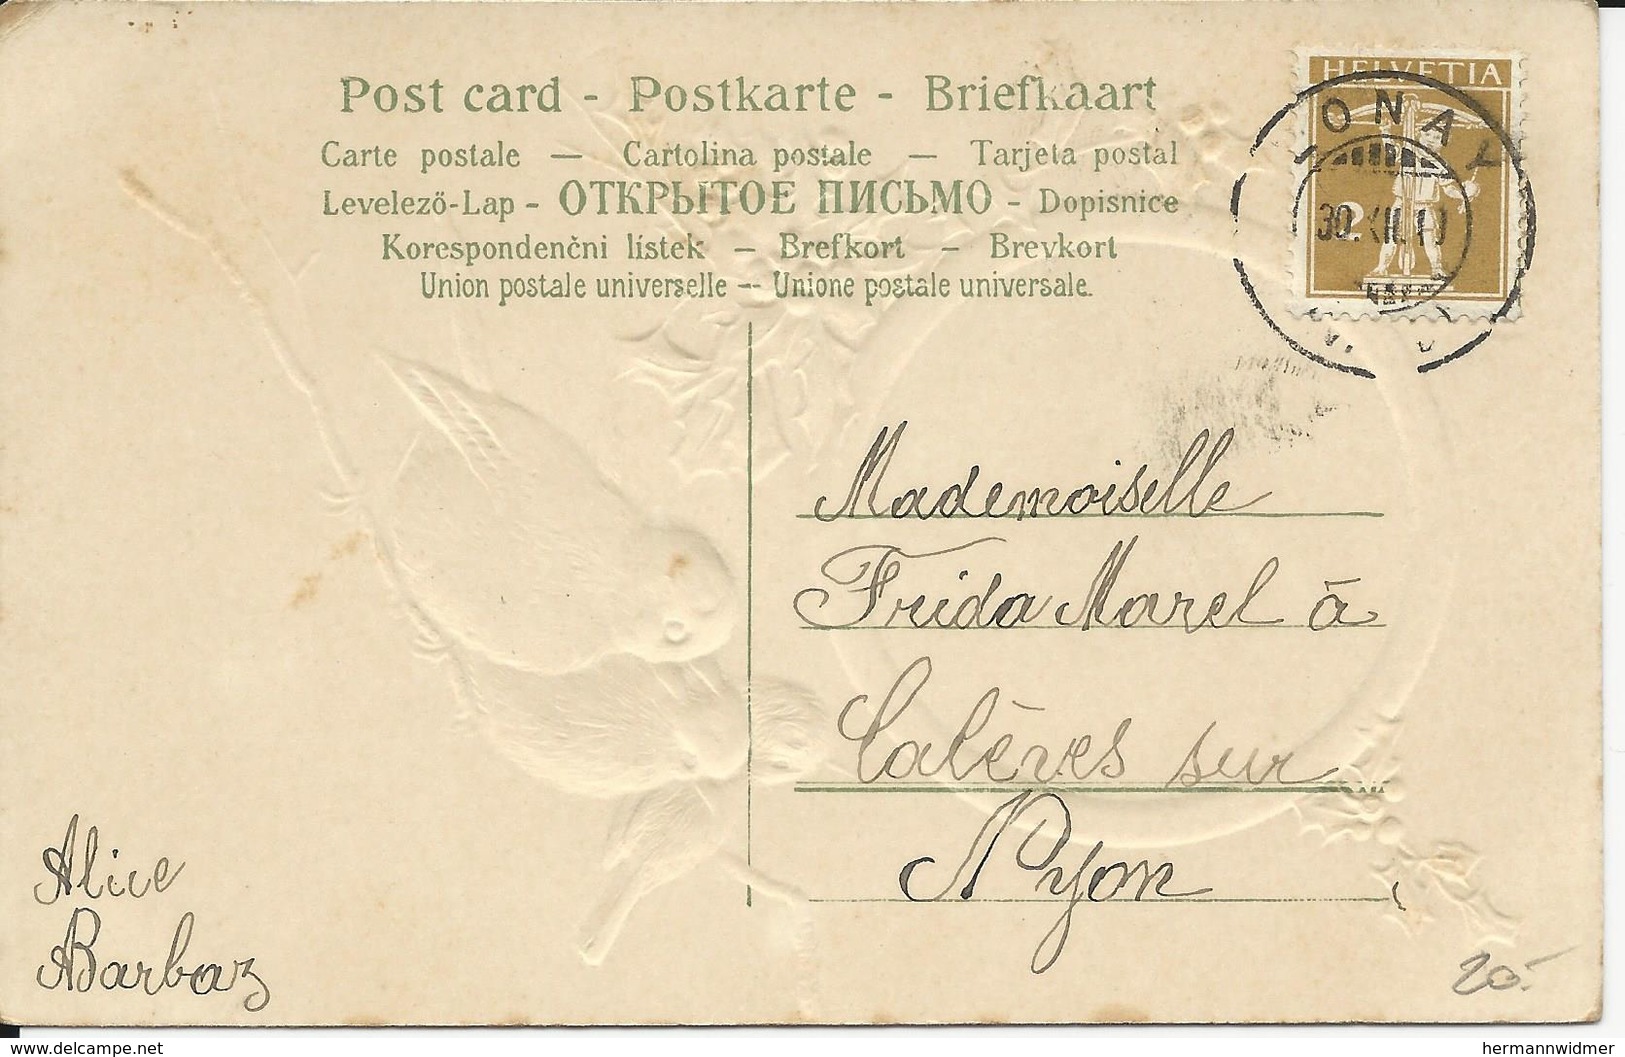 Post card - Postkarte - Briefkaart
Carte postale — Cartolina postale — Tarjeta postal
Levelező-Lap - ОТКРЫТОЕ ПИСЬМО - Dopisnice
Korespondenčni lístek — Brefkort — Brevkort
Union postale universelle -- Unione postale universale.
HELVETIA
2
30.XII.10
Mademoiselle
Frida Marel à
Calèves sur
Nyon
Alice
Barbaz
20.-
delcampe.net
hermannwidmer